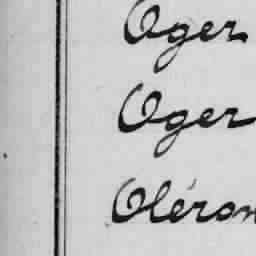 Oger
Oger
Oléron